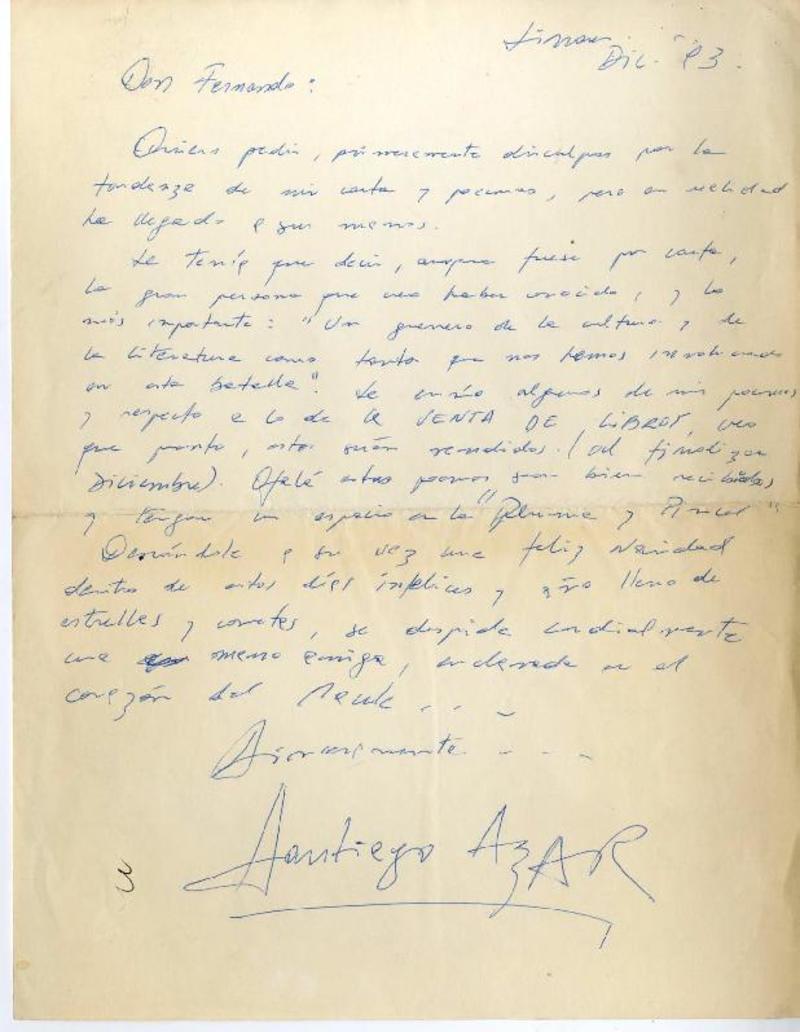 Linares
Dic. 93.
Don Fernando:
Quiero pedir, primeramente disculpas por la
tardanza de mi carta y poemas, pero en realidad
ha llegado a sus manos.
Le tenía que decir, aunque fuese por carta,
la gran persona que creo haber conocido, y lo
más importante: "Un guerrero de la cultura y de
la literatura como tanto que nos hemos involucrado
en esta batalla". Le envío algunos de mis poemas
y respecto a lo de la VENTA DE LIBROS, creo
que pronto, estos serán vendidos. (al finalizar
Diciembre). Ojalá estos poemas sean bien recibidos
y tengan un espacio en la "Pluma y Pincel"
Deseándole a su vez una feliz Navidad
dentro de estos días infelices y año lleno de
estrellas y cometas, se despide cordialmente
una mano amiga, enclavada en el
corazón del Maule...
Sinceramente....
Santiago AZAR